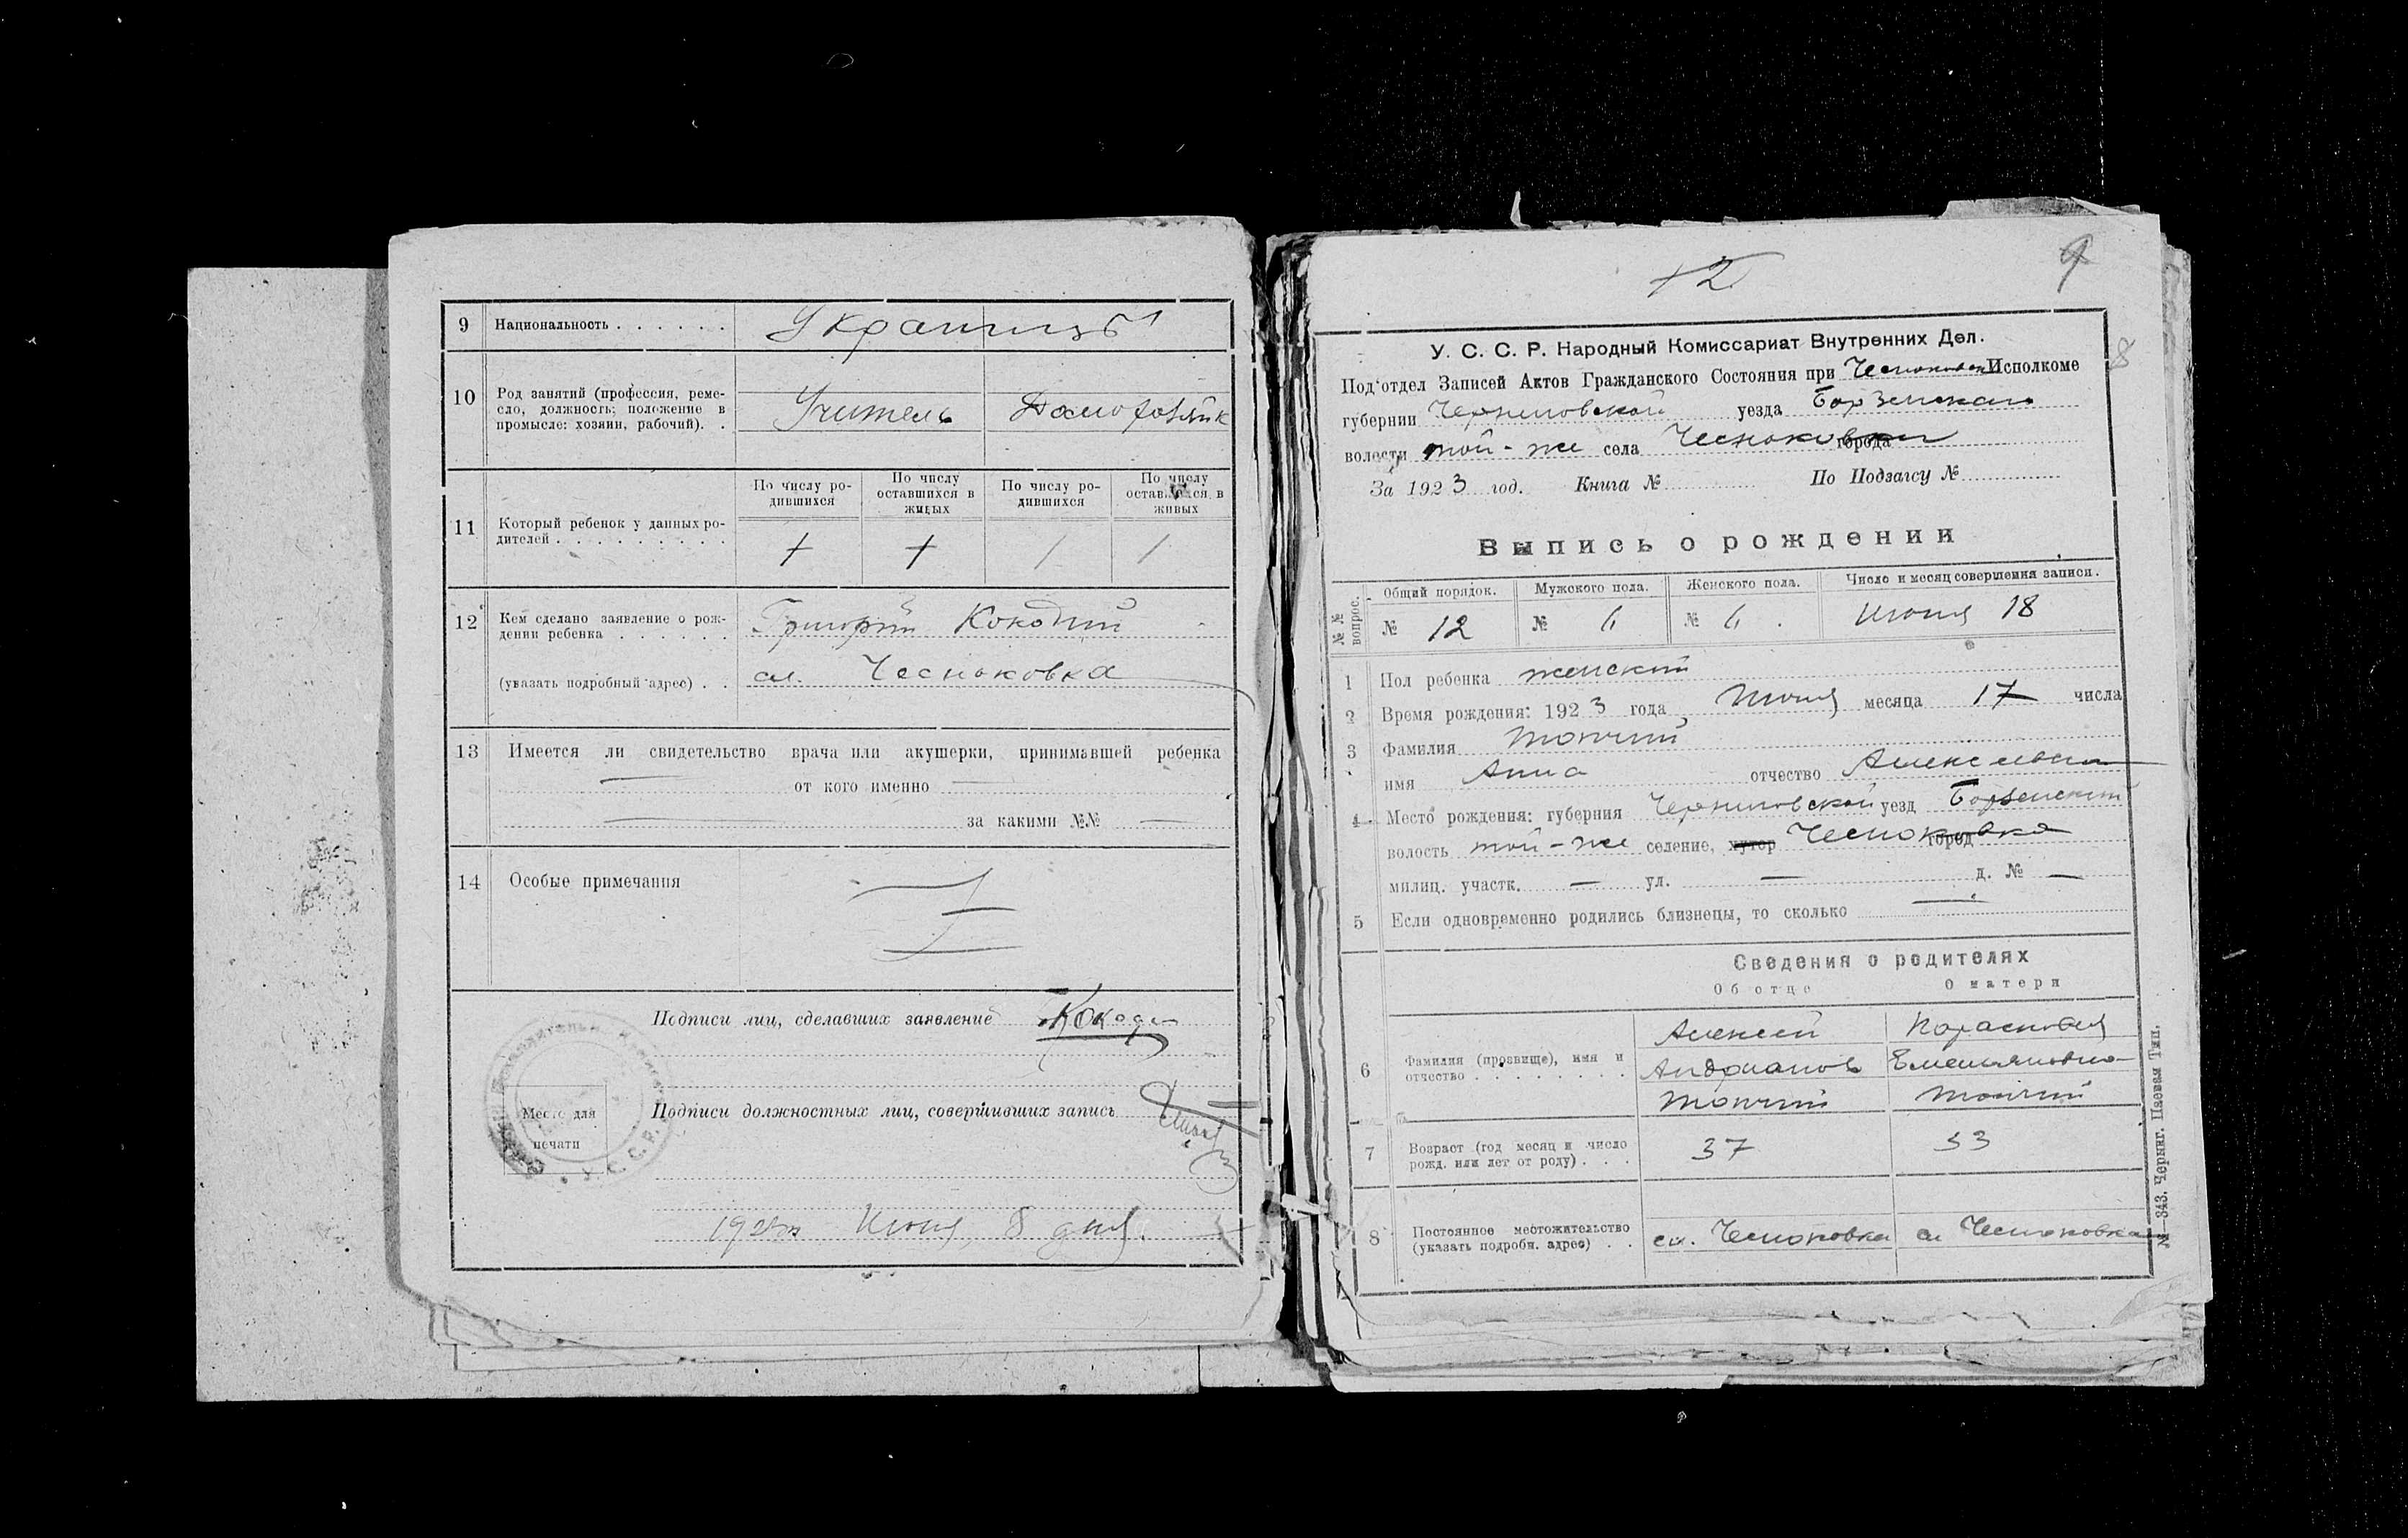 9 Национальность . . . . . . Украинцы
10 Род занятий (профессия, реме-
сло, должность; положение в
промысле: хозяин, рабочий). . Учитель
По числу ро-
дившихся
По числу
оставшихся в
живых
По числу ро-
дившихся
По числу
оставшихся в
живых
11 Который ребенок у данных ро-
дителей . . . . . . . . .
12 Кем сделано заявление о рож-
дении ребенка . . . . . . Григорий Кокодий
(указать подробный адрес) . . сл. Чесноковка
13 Имеется ли свидетельство врача или акушерки, принимавшей ребенка
— от кого именно —
— за какими №№ —
14 Особые примечания
Подписи лиц, сделавших заявление
Место для
печати
У. С. С. Р.
Подписи должностных лиц, совершивших запись
Июня 8 дня
+2
9
8
У. С. С. Р. Народный Комиссариат Внутренних Дел.
Под'отдел Записей Актов Гражданского Состояния при Чесноковск Исполкоме
губернии Черниговской уезда Борзенского
волости той-же села Чесноковки города
За 1923 год. Книга № По Подзагсу №
Выпись о рождении
№ № вопрос.
Общий порядок. Мужского пола. Женского пола. Число и месяц совершения записи.
№ 12 № 6 № 6 Июня 18
1 Пол ребенка женский
2 Время рождения: 1923 года Июня месяца 17 числа
3 Фамилия Топчий
имя Анна отчество Алексеевна
4 Место рождения: губерния Черниговской уезд Борзенский
волость той-же селение, хутор Чесноковка город
милиц. участк. — ул. — д. № —
5 Если одновременно родились близнецы, то сколько —
Сведения о родителях
Об отце О матери
6 Фамилия (прозвище), имя и
отчество . . . . . . . .
Алексей
Андрианов
Топчий
Парасковия
Емельяновна
Топчий
7 Возраст (год месяц и число
рожд. или лет от роду) . . . 37 33
8 Постоянное местожительство
(указать подробн. адрес) . . сл. Чесноковка сл Чесноковка
№—343. Черниг. Цевая Тип.